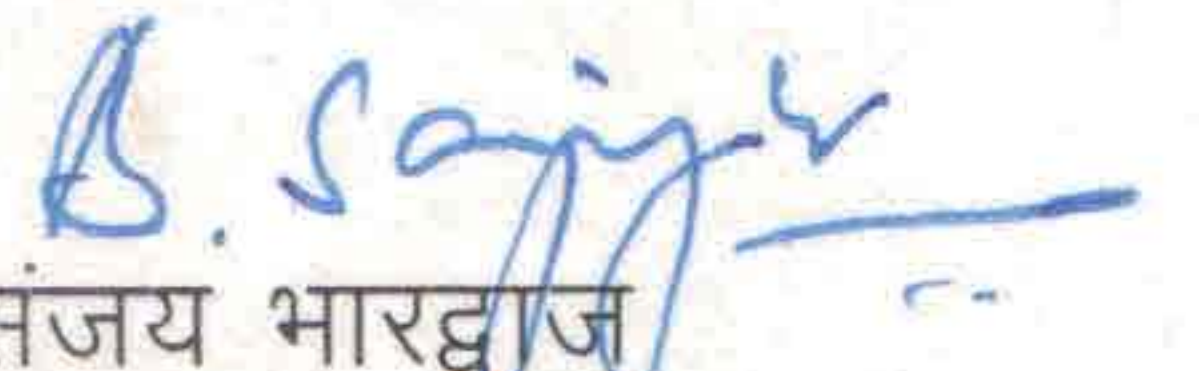 B. Sanjay
संजय भारद्वाज